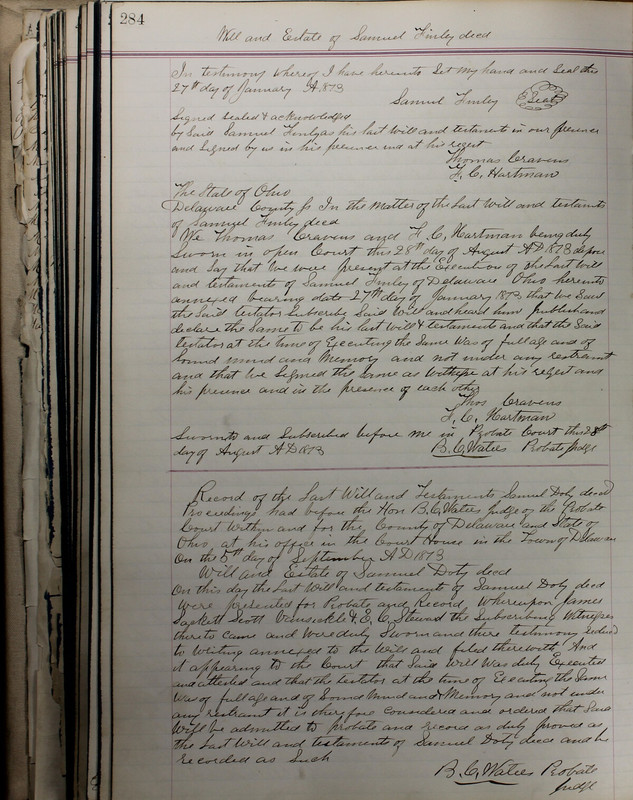 284
Will and Estate of Samuel Finley decd
In testimony whereof I have hereunto Set my hand and Seal this
27th day of January A.1873
Samuel Finley Seal
Signed Sealed & acknowledged
by Said Samuel Finley as his last Will and testament in our presence
and Signed by us in his presence and at his reqest
Thomas Cravens
F. C. Hartman
The State of Ohio
Delaware County ss In the Matter of the Last Will and testament
of Samuel Finley decd
We Thomas Cravens and F. C. Hartman being duly
Sworn in open Court this 28th day of August AD 1873 depose
and Say that We were present at the Execution of the Last Will
and testament of Samuel Finley of Delaware Ohio hereunto
annexed bearing date 27th day of January 1873 that We Saw
the Said testator Subscribe Said Will and heard him publish and
declare the Same to be his last Will & testament and that the Said
testator at the time of Executing the Same Was of full age and of
Sound mind and Memory and not under any restraint
and that We Signed the Same as Witnesses at his reqest and
his presence and in the presence of each other
Thos Cravens
F. C. Hartman
Sworn to and Subscribed before me in Probate Court this 28th
day of August AD 1873 B. C. Waters Probate Judge
Record of the Last Will and Testament Samuel Doty decd
Proceedings had before the Hon B. C. Waters Judge of the Probate
Court Within and for the County of Delaware and State of
Ohio at his office in the Court House in the Town of Delaware
On the 5th day of September AD 1873
Will and Estate of Samuel Doty decd
On this day the Last Will and testament of Samuel Doty decd
Were presented for Probate and Record Whereupon James
Sackett Scott Vansickle & E. C. Steward the Subscribing Witnesses
thereto came and Were duly Sworn and there testimony reduced
to Writing annexed to the Will and filed therewith And
it appearing to the Court that Said Will Was duly Executed
and attested and that the testator at the time of Executing the Same
Was of full age and of Sound Mind and Memory and not under
any restraint it is therefore considered and ordered that Said
Will be admitted to probate and record as duly proved as
the Last Will and testament of Samuel Doty decd and be
recorded as Such
B. C. Waters Probate
Judge